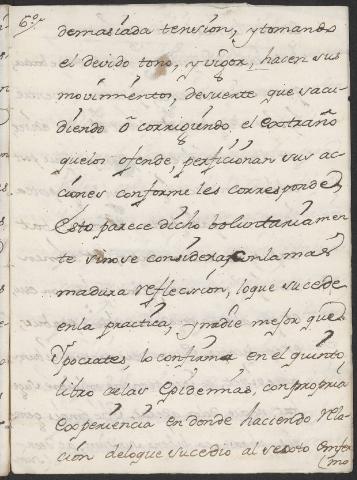 6º
demasiada tension, y tomando
el devido tono, y vigor, hacen sus
movimientos, desuerte que sacu-
diendo ô corrigiendo el extraño
quelos ofende, perficionan sus ac-
ciones conforme les corresponde,
Esto parece dicho boluntariamen
te sinose considera, conla mas
madura reflecsion, loque sucede
enla practica, y nadie mejor que
Ypocrates, lo confirma en el quinto
libro delas Epidemias, con propria
experiencia en donde haciendo rela-
cion deloque sucedio al sexto enfer
(mo